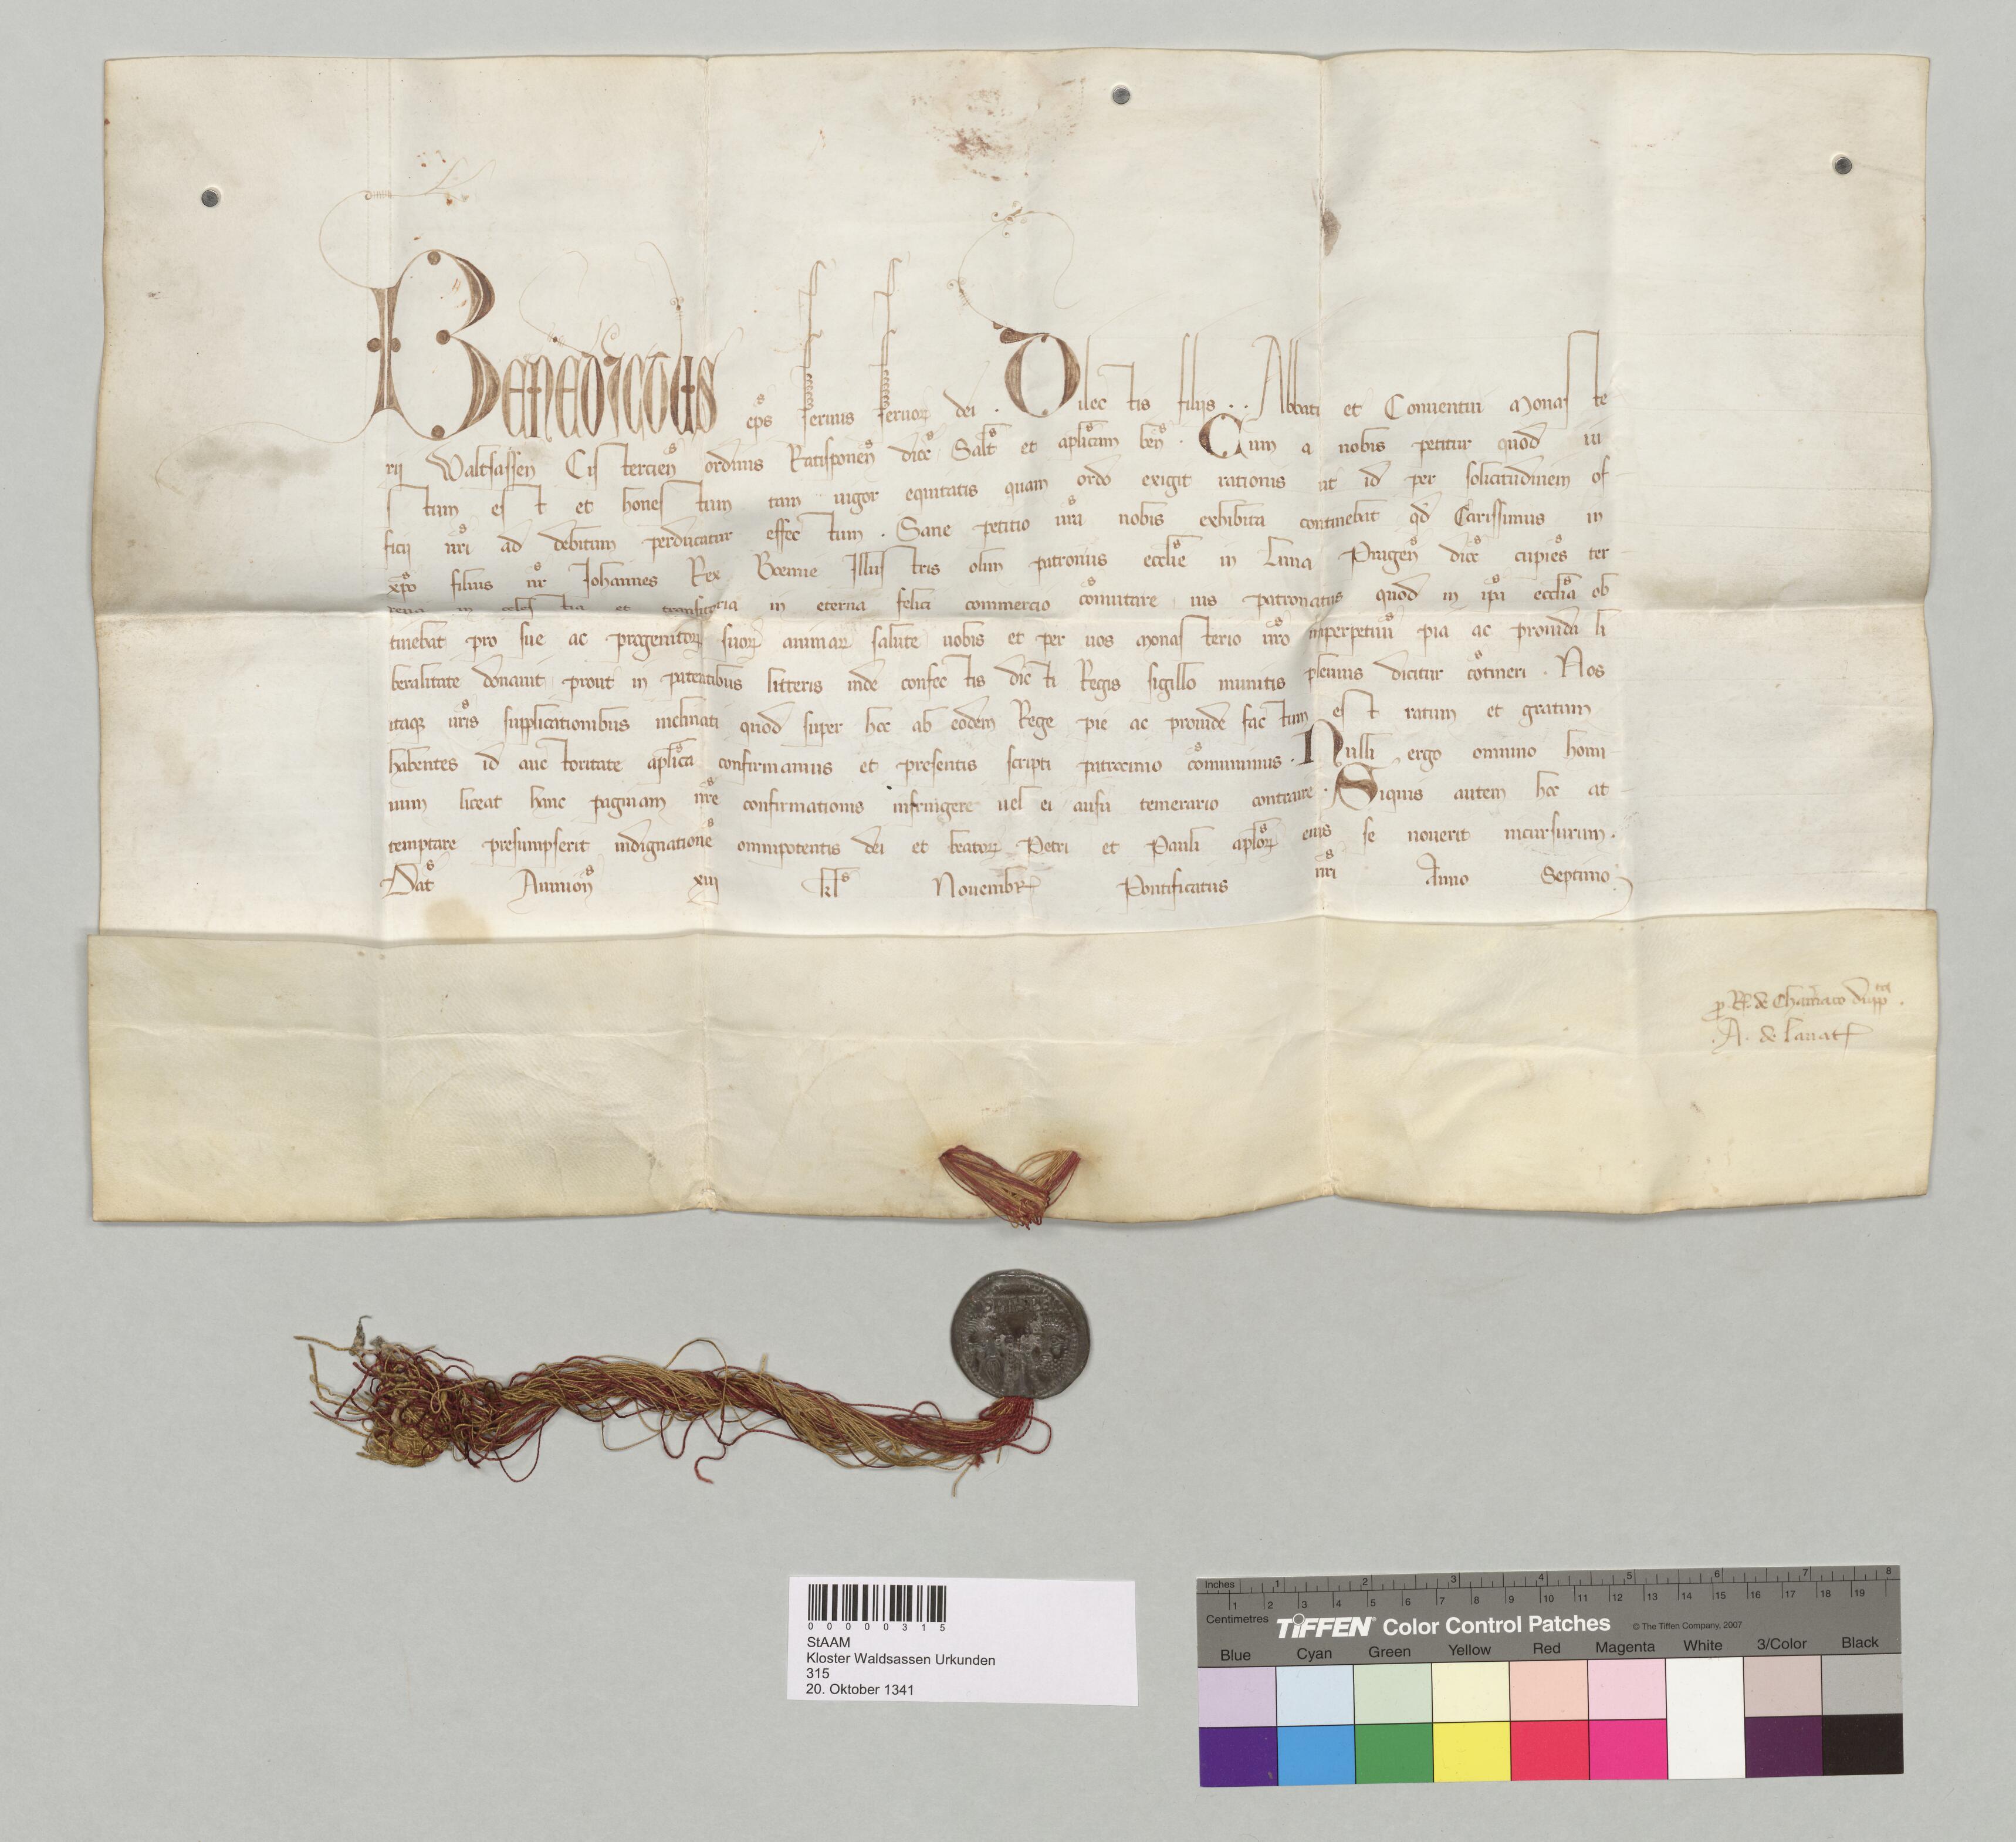 Benedictus eps seruus seruor dei . Dilectis filiis . . Abbati et Conuentui Monaste
rij Waltsassen Cistercien ordinis Ratisponen dioc Salt et aplicam ben . Cum a nobis petitur quod iu
stum est et honestum tam uigor equitatis quam ordo exigit rationis ut id per solicitudinem of
ficij nri ad debitum perducatur effectum . Sane petitio ura nobis exhibita continebat qd Carissimus in
xpo filius nr Johannes Rex Boemie Illustris olim patronus ecclie in Luna Pragen dioc cupies ter
rena in celestia et transitoria in eterna felici commercio comutare ius patronatus quod in ipa ecclia ob
tinebat pro sue ac progenitor suor animar salute uobis et per uos Monasterio uro imperpetuu pia ac prouida li
beralitate donauit prout in patentibus litteris inde confectis dicti Regis sigillo munitis plenius dicitur cotineri . Nos
itaq uris supplicationibus inclinati quod super hoc ab eodem Rege pie ac prouide factum est ratum et gratum
habentes id auctoritate aplica confirmamus et presentis scripti patrocinio comunimus . Nulli ergo omnino homi
num liceat hanc paginam nre confirmationis infringere uel ei ausu temerario contraire . Siquis autem hoc at
temptare presumpserit indignatione omnipotentis dei et beator Petri et Pauli aplor eius se nouerit incursurum .
Dat Auinion xiij kl Nouembr Pontificatus nri Anno Septimo
A . de
00000315
StAAM
Kloster Waldsassen Urkunden
315
20. Oktober 1341
Inches 1 2 3 4 5 6 7 8
1 2 3 4 5 6 7 8 9 10 11 12 13 14 15 16 17 18 19
Centimetres
TIFFEN® Color Control Patches © The Tiffen Company, 2007
Blue Cyan Green Yellow Red Magenta White 3/Color Black